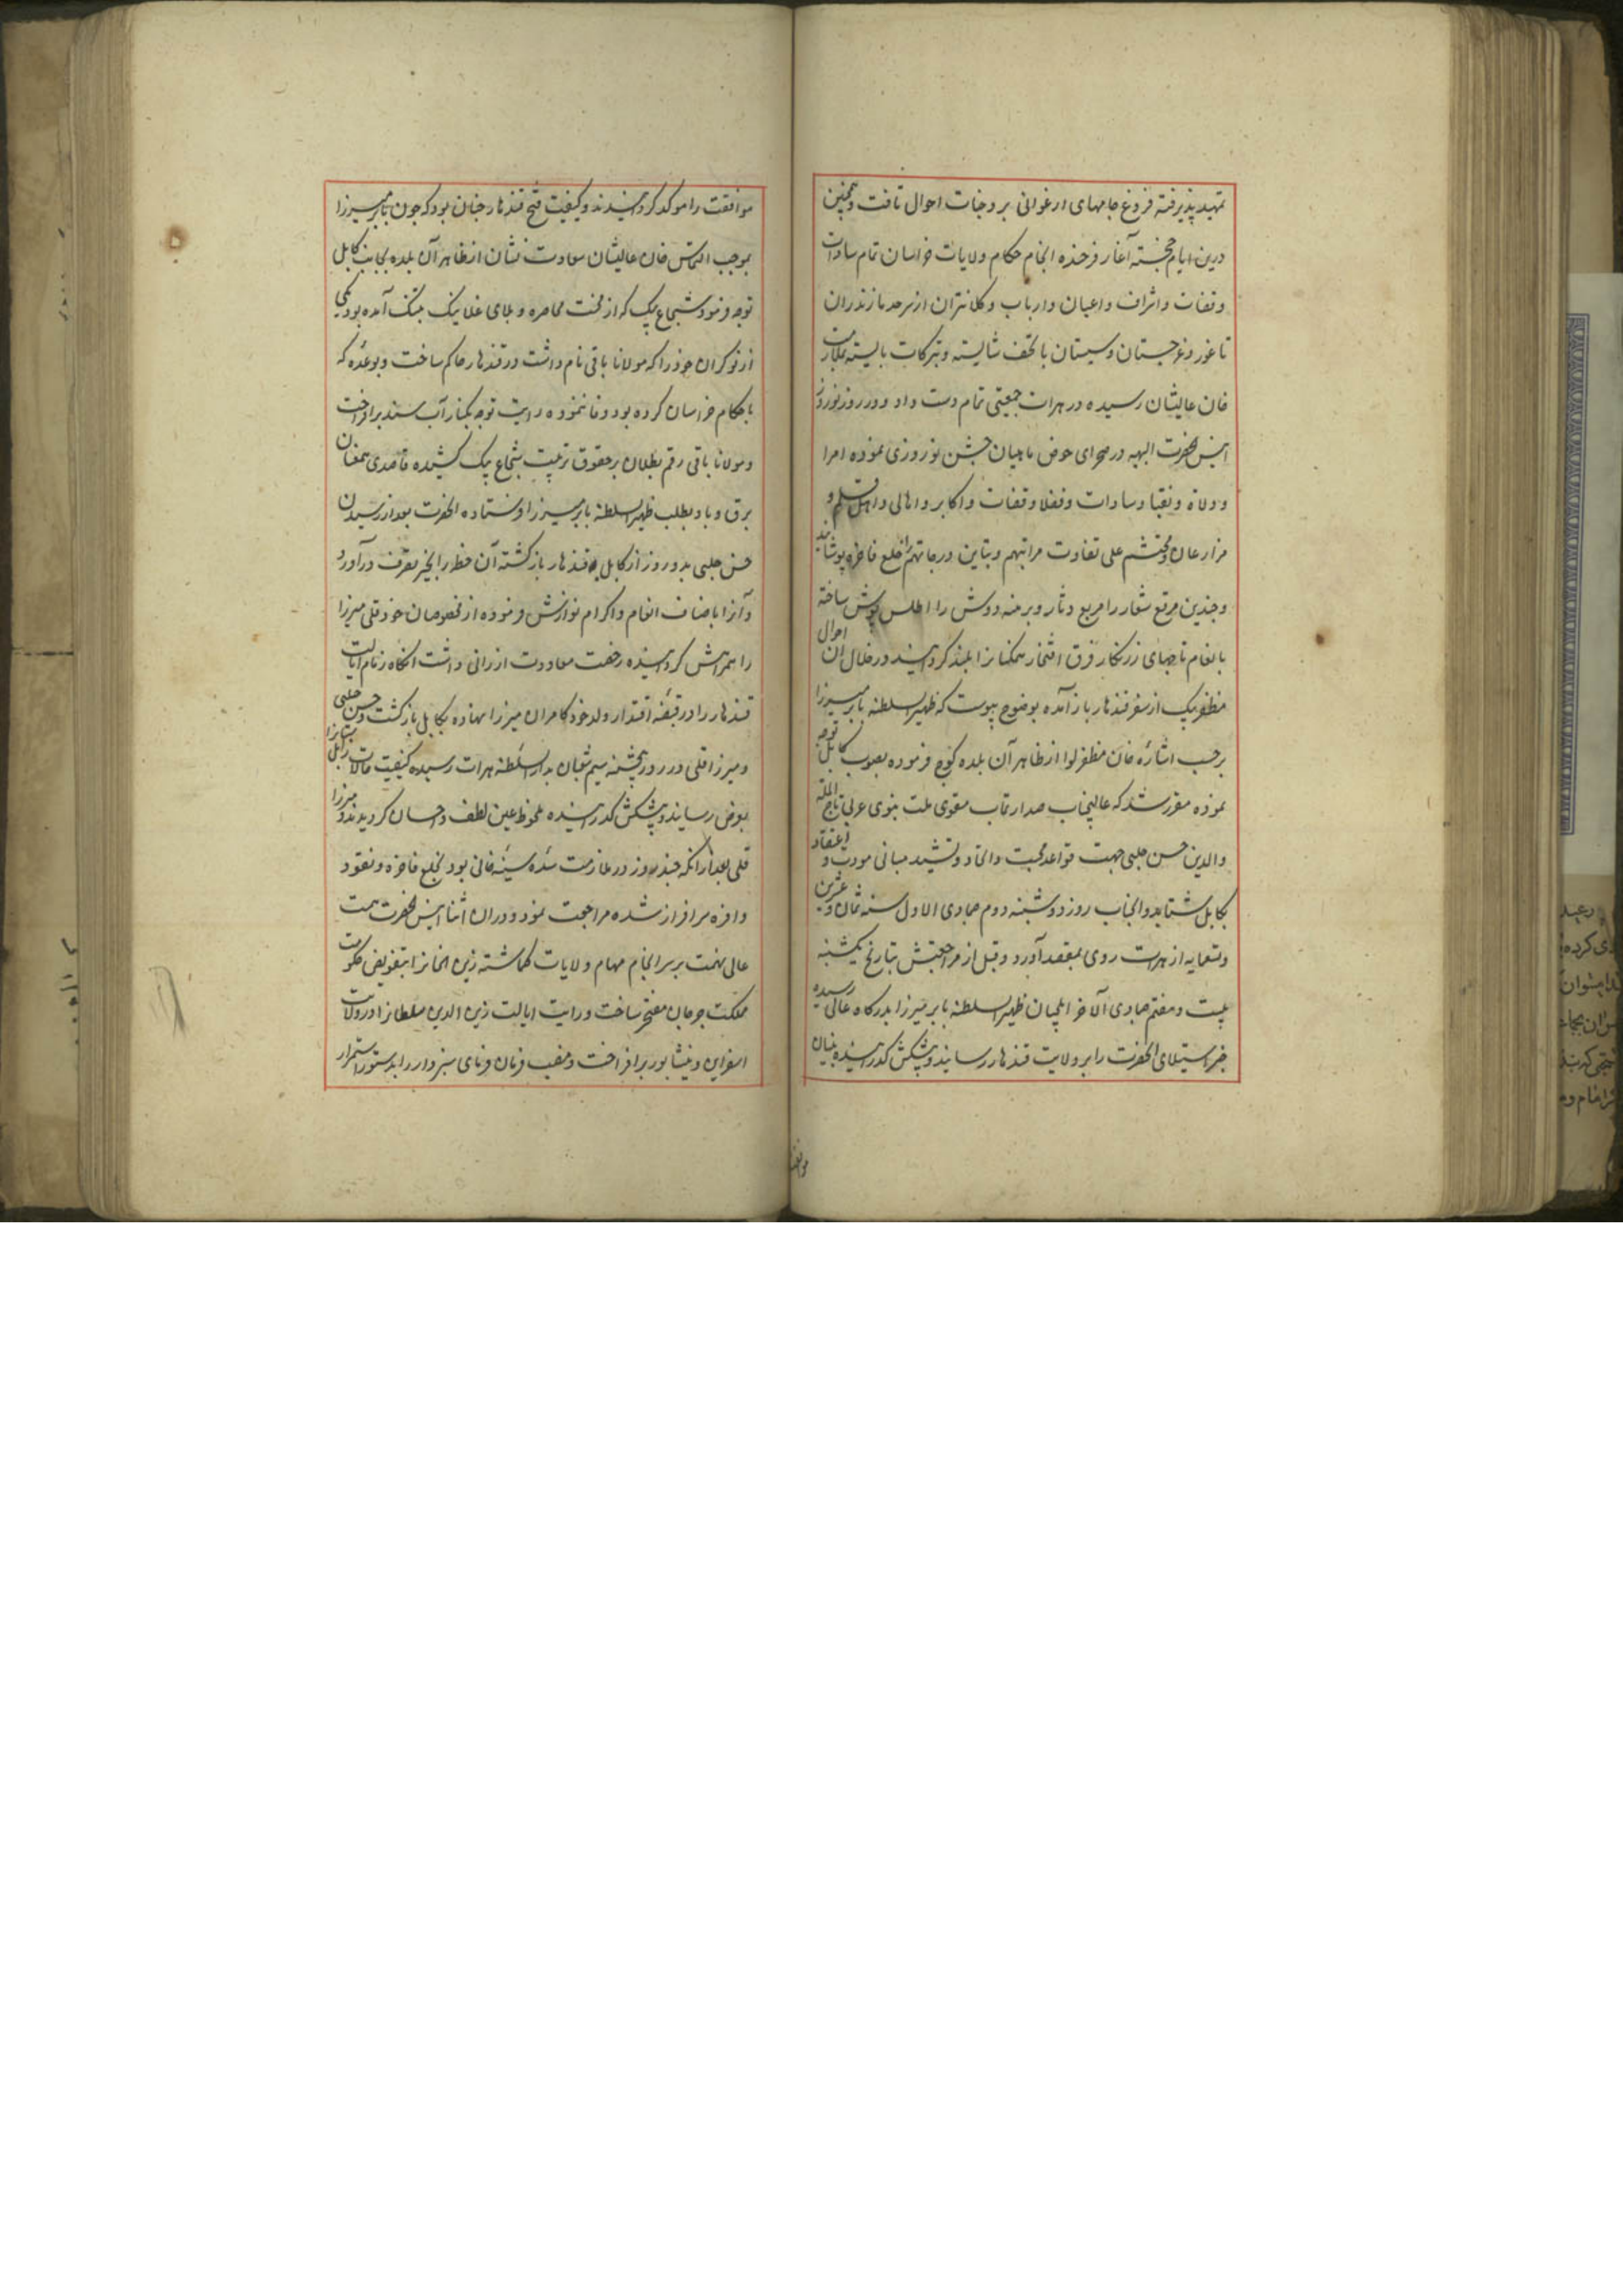 تمهید پذیرفته فروغ جامهای ارغوانی بر وجنات احوال تافت و همچنین
درین ایام خجسته آغاز فرخنده انجام حکام ولایات خراسان تمام سادات
و قضات و اشراف و اعیان و ارباب و کلانتران از سرحد مازندران
تا غور و غرجستان و سیستان با تحف شایسته و تبرکات بایسته بملازمت
خان عالیشان رسیده در هرات جمعیتی تمام دست داد و در روز نوروز
انیس الحضرت البهیه در صحرای حوض ماهیان جشن نوروزی نموده امرا
و ولاة و نقبا و سادات و فضلا و قضات و اکابر و اهالی و اهل قلم و
مزارعان و محتشم علی تفاوت مراتبهم و تباین درجاتهم را خلع فاخره پوشانید
و چندین مرقع شعار را مربع دثار و برهنه دوش را اطلس پوش ساخته
بانعام تاجهای زرنگار فرق افتخار همکنانرا بلند کردانید در خلال آن احوال
مظفر بیک از سفر قندهار باز آمده بوضوح پیوست که ظهیر السلطنه بابر میرزا
بر حسب اشاره خان مظفر لوا از ظاهر آن بلده کوچ فرموده بصوب کابل توجه
نموده مقرر شد که عالیجناب صدارت مآب مقوی ملت نبوی عربی تاج المله
والدین حسن جلبی جهت قواعد محبت و اتحاد و تشیید مبانی مودت و اعتقاد
بکابل شتابد و آنجناب روز دوشنبه دوم جمادی الاول سنه ثمان و عشرین
و تسعمایه از هرات روی بمقصد آورد و قبل از مراجعتش بتاریخ یکشنبه
بیست و هفتم جمادی الآخر ایلچیان ظهیر السلطنه بابر میرزا بدرکاه عالی رسیده
خبر استیلای آنحضرت را بر ولایت قندهار رسانیدند و پیشکش کذرانیده بنیان
موافقت را موکد کردانیدند و کیفیت فتح قندهار چنان بود که چون بابر میرزا
بموجب التماس خان عالیشان سعادت نشان از ظاهر آن بلده بجانب کابل
توجه فرمود شجاع بیک که از محنت محاصره و بلای غلا بتنک آمده بود یکی
از نوکران خود را که مولانا باقی نام داشت در قندهار حاکم ساخت و بوعده که
با حکام خراسان کرده بود وفا ننموده رایت توجه بکنار آب سند برافراخت
و مولانا باقی رقم بطلان بر حقوق تربیت شجاع بیک کشیده قاصدی همعنان
برق و باد بطلب ظهیر السلطنه بابر میرزا فرستاده آنحضرت بعد از رسیدن
حسن جلبی بدو روز از کابل بقندهار باز کشته آن خطه را بحیز تصرف درآورد
و آنرا باصناف انعام و اکرام نوازش فرموده از مخصوصان خود قلی میرزا
را همراهش کردانیده رخصت معاودت ارزانی داشت آنکاه زمام ایالت
قندهار را در قبضه اقتدار ولد خود کامران میرزا نهاده بکابل باز کشت و حسن جلبی
و میرزا قلی در روز پنجشنبه سیم شعبان بدار السلطنه هرات رسیده کیفیت حالات
بعرض رسانیدند و پیشکش کذرانیده ملحوظ عین لطف و احسان کردیدند و میرزا
قلی بعد از آنکه چند روز در ملازمت سده سنیه خانی بود بخلع فاخره و نقود
وافره سرافراز شده مراجعت نمود و در ان اثنا انیس الحضرت همت
عالی نهمت بر سرانجام مهام ولایات کماشته زین الخانرا بتفویض حکومت
مملکت جرجان مفتخر ساخت و رایت ایالت زین الدین سلطانرا در ولایت
اسفراین و نیشابور برافراخت و منصب فرمان فرمای سبزوار را بدستور استمرار